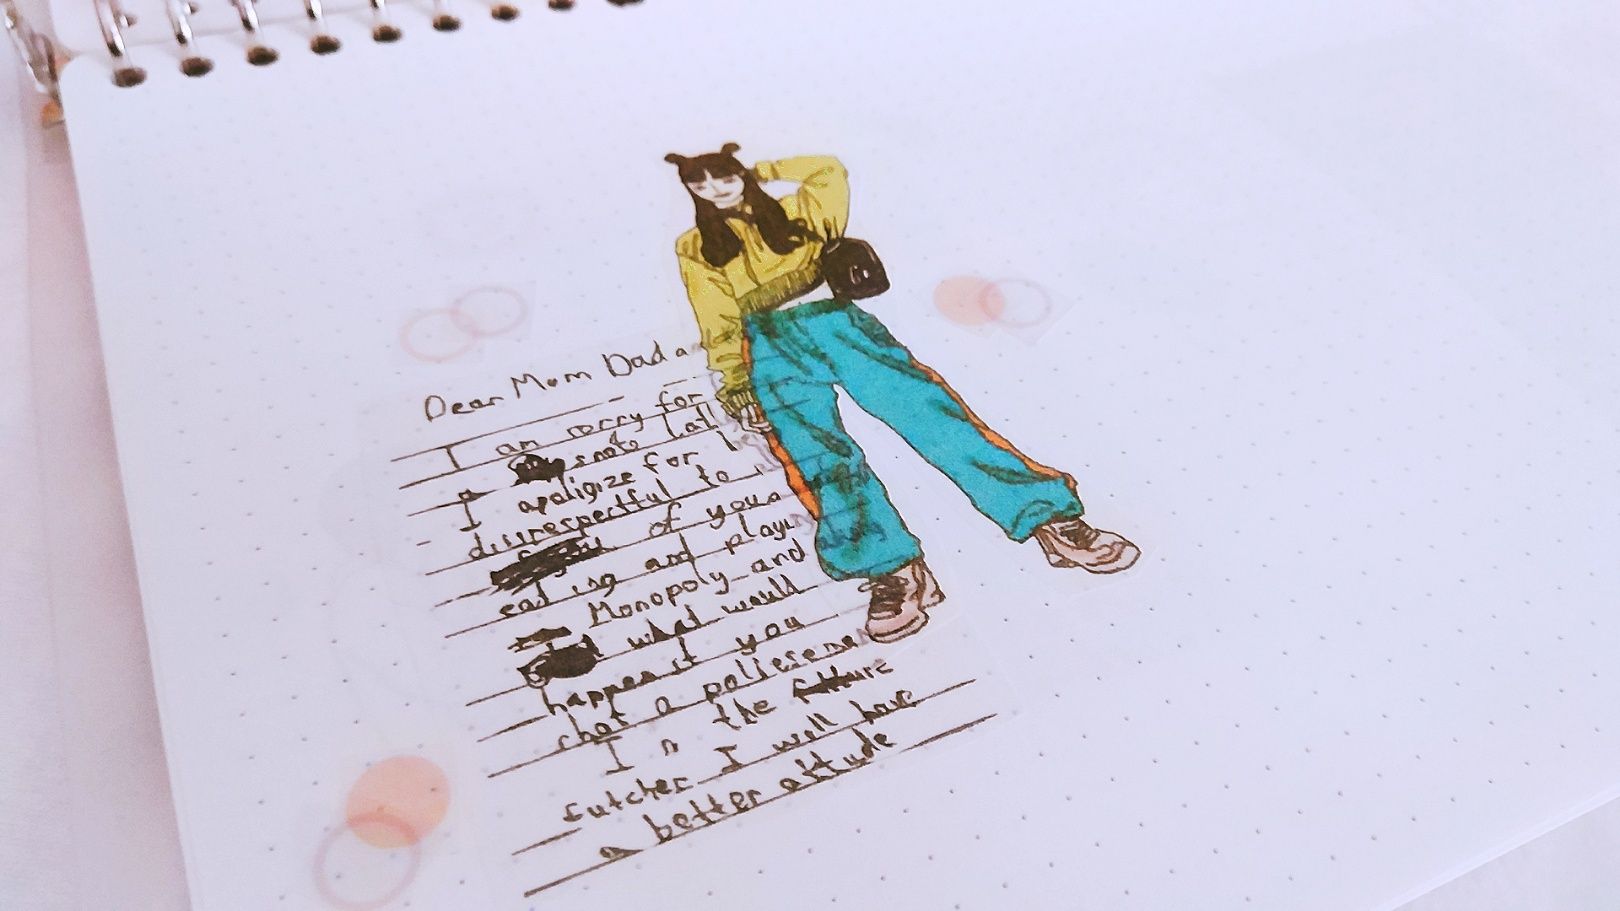 Dear Mom Dad a
I am sorry for
snote
I apoligize for
disrespectful to
of you
eading and play
Monopoly and
what would
happen if you
shot a policemen
In the future
futcher I will have
a better attude